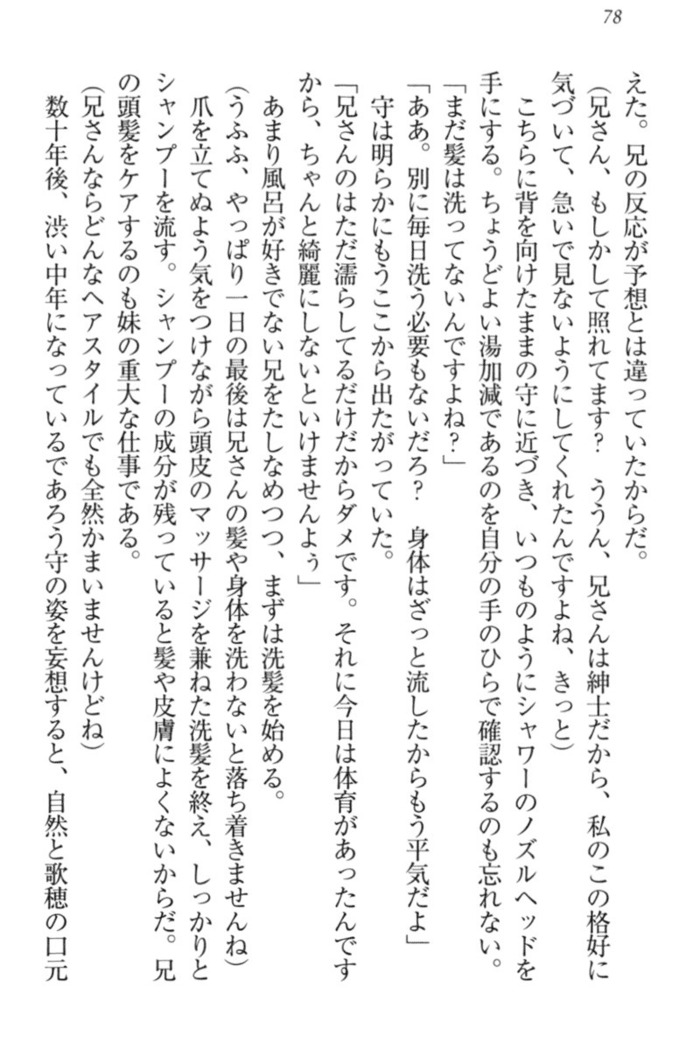 78
えた。兄の反応が予想とは違っていたからだ。
(兄さん、もしかして照れてます?　ううん、兄さんは紳士だから、私のこの格好に
気づいて、急いで見ないようにしてくれたんですよね、きっと)
　こちらに背を向けたままの守に近づき、いつものようにシャワーのノズルヘッドを
手にする。ちょうどよい湯加減であるのを自分の手のひらで確認するのも忘れない。
「まだ髪は洗ってないんですよね?」
「ああ。別に毎日洗う必要もないだろ?　身体はざっと流したからもう平気だよ」
　守は明らかにもうここから出たがっていた。
「兄さんのはただ濡らしてるだけだからダメです。それに今日は体育があったんです
から、ちゃんと綺麗にしないといけませんよぅ」
　あまり風呂が好きでない兄をたしなめつつ、まずは洗髪を始める。
(うふふ、やっぱり一日の最後は兄さんの髪や身体を洗わないと落ち着きませんね)
　爪を立てぬよう気をつけながら頭皮のマッサージを兼ねた洗髪を終え、しっかりと
シャンプーを流す。シャンプーの成分が残っていると髪や皮膚によくないからだ。兄
の頭髪をケアするのも妹の重大な仕事である。
(兄さんならどんなヘアスタイルでも全然かまいませんけどね)
　数十年後、渋い中年になっているであろう守の姿を妄想すると、自然と歌穂の口元